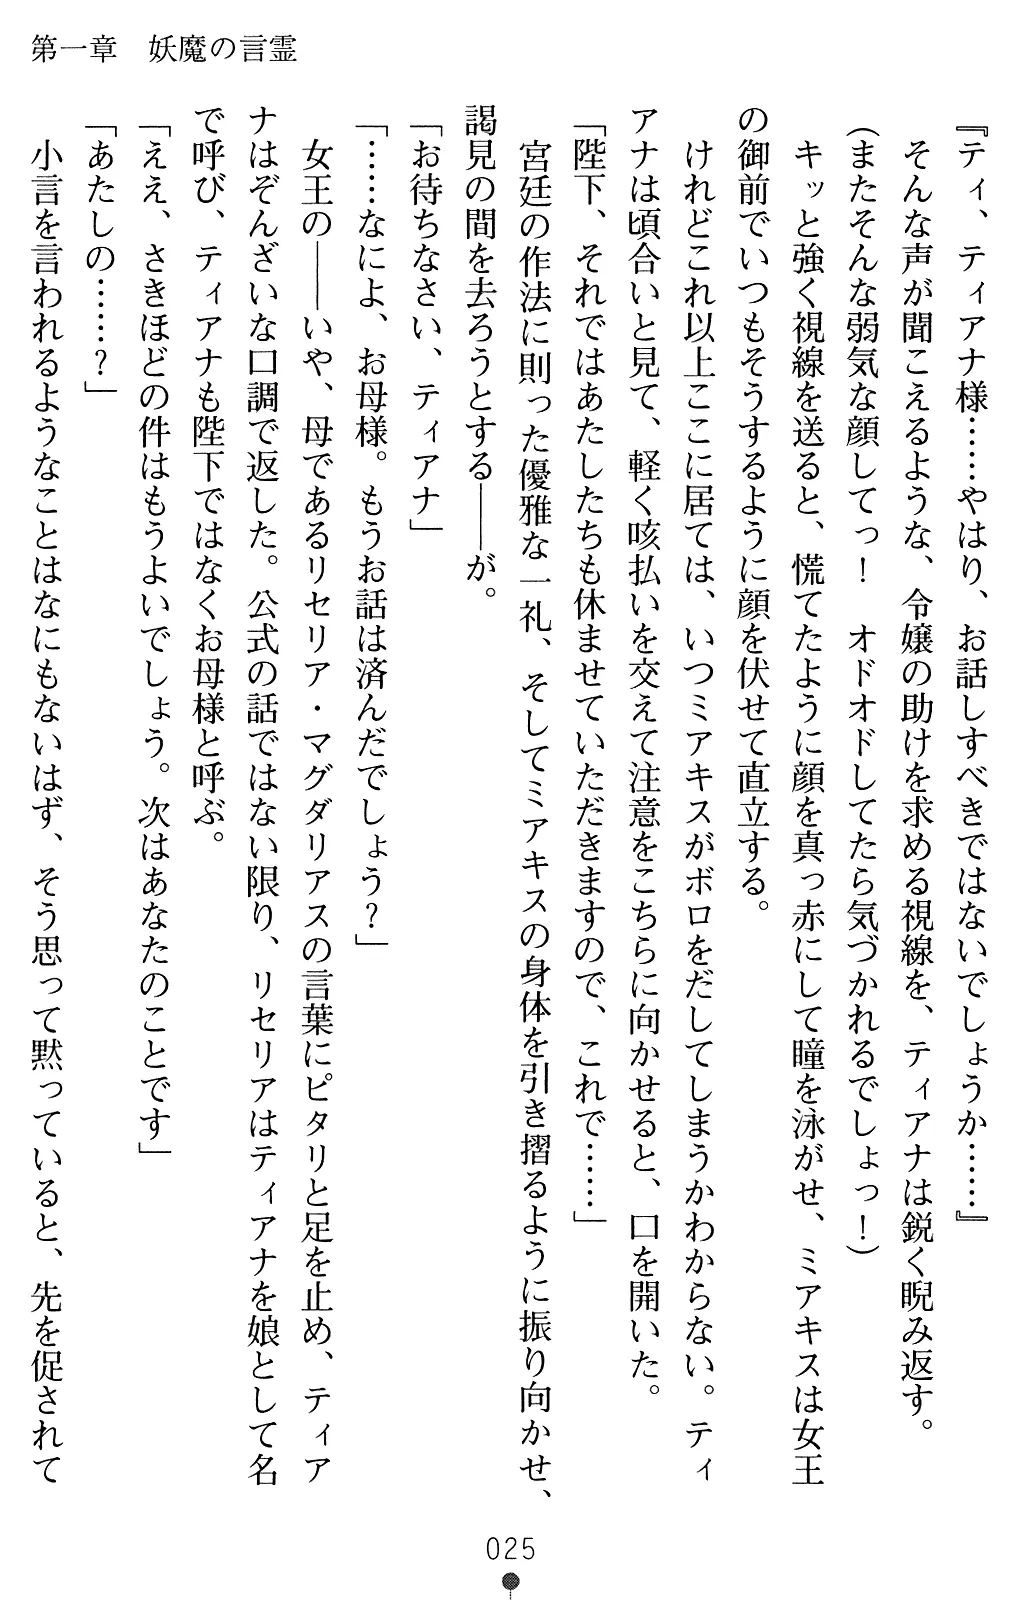 第一章　妖魔の言霊
『ティ、ティアナ様……やはり、お話しすべきではないでしょうか……』
　そんな声が聞こえるような、令嬢の助けを求める視線を、ティアナは鋭く睨み返す。
(またそんな弱気な顔してっ！　オドオドしてたら気づかれるでしょっ！)
　キッと強く視線を送ると、慌てたように顔を真っ赤にして瞳を泳がせ、ミアキスは女王
の御前でいつもそうするように顔を伏せて直立する。
　けれどこれ以上ここに居ては、いつミアキスがボロをだしてしまうかわからない。ティ
アナは頃合いと見て、軽く咳払いを交えて注意をこちらに向かせると、口を開いた。
「陛下、それではあたしたちも休ませていただきますので、これで……」
　宮廷の作法に則った優雅な一礼、そしてミアキスの身体を引き摺るように振り向かせ、
謁見の間を去ろうとする――が。
「お待ちなさい、ティアナ」
「……なによ、お母様。もうお話は済んだでしょう？」
　女王の――いや、母であるリセリア・マグダリアスの言葉にピタリと足を止め、ティア
ナはぞんざいな口調で返した。公式の話ではない限り、リセリアはティアナを娘として名
で呼び、ティアナも陛下ではなくお母様と呼ぶ。
「ええ、さきほどの件はもうよいでしょう。次はあなたのことです」
「あたしの……？」
　小言を言われるようなことはなにもないはず、そう思って黙っていると、先を促されて
025